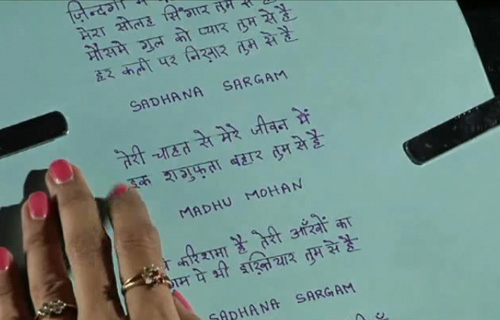 ज़िन्दगी में
मेरा सोलह सिंगार तुम से है
मौसमे गुल को प्यार तुम से है
हर कली पर निखार तुम से है
SADHANA SARGAM
तेरी चाहत से मेरे जीवन में
इक शगुफ़्ता बहार तुम से है
MADHU MOHAN
करिशमा है तेरी आँखों का
पे भी इख़्तियार तुम से है
SADHANA SARGAM